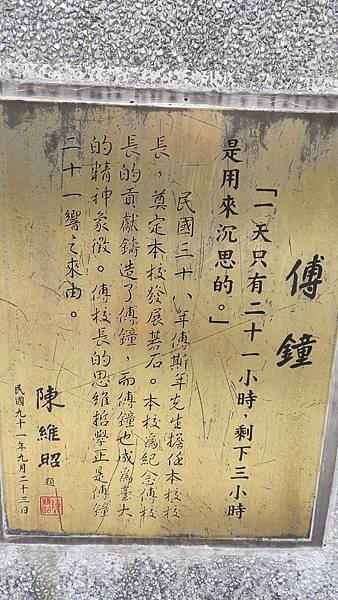 傅鐘
「一天只有二十一小時，剩下三小時
是用來沉思的。」
民國三十八年傅斯年先生擔任本校校
長，奠定本校發展基石。本校為紀念傅校
長的貢獻鑄造了傅鐘，而傅鐘也成為臺大
的精神象徵。傅校長的思維哲學正是傅鐘
二十一響之來由。
陳維昭 題
民國九十一年九月二十三日